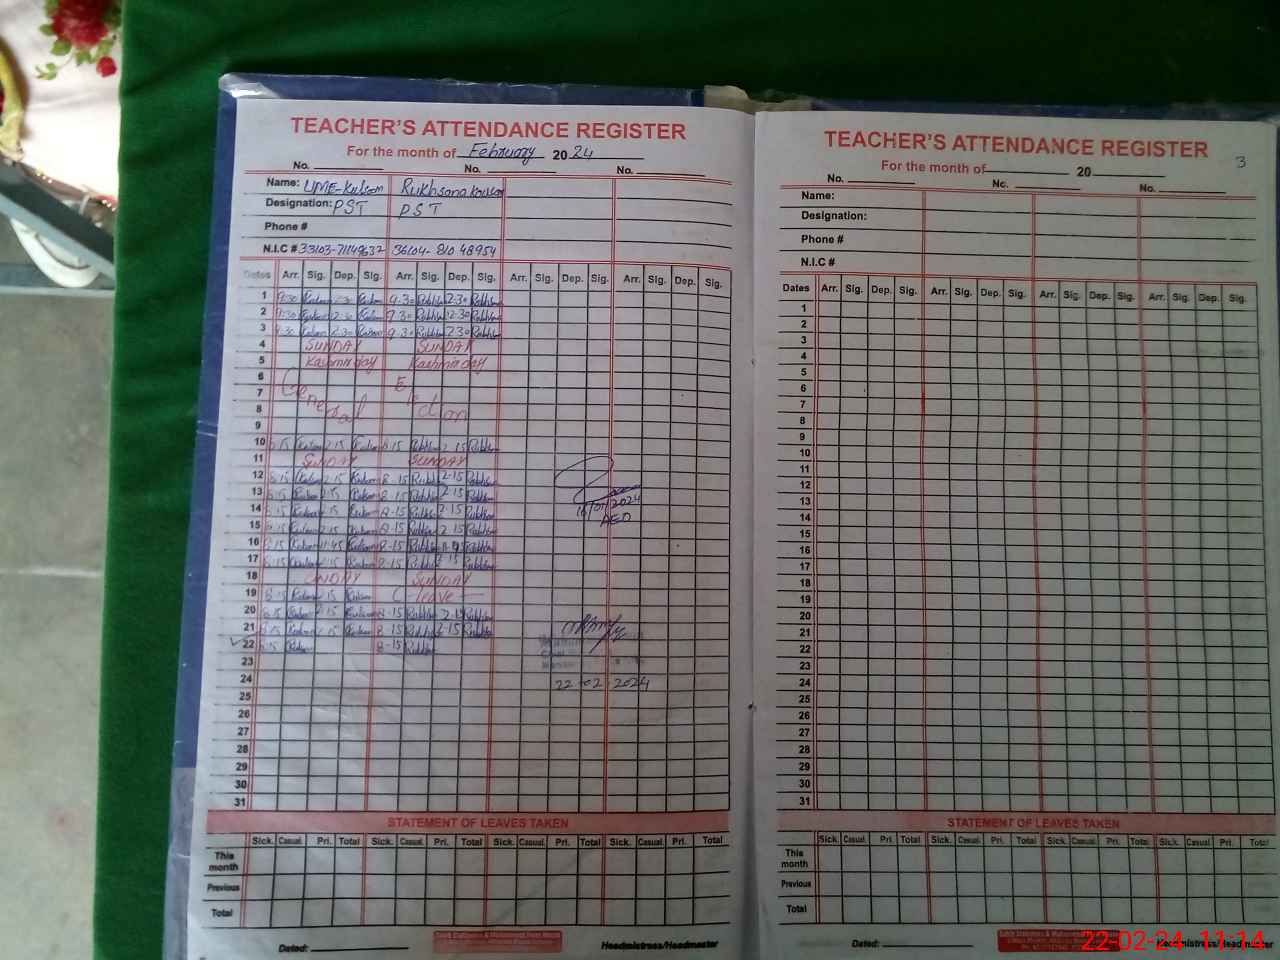 TEACHER'S ATTENDANCE REGISTER
For the month of February 2024
No. No. No.
Name: UME-Kulsoom Rukhsana Kousar
Designation: PST PST
Phone #
N.I.C #
Dates Arr. Sig. Dep. Sig. Arr. Sig. Dep. Sig. Arr. Sig. Dep. Sig. Arr. Sig. Dep. Sig.
1 9:30 Kulsoom 2:30 Kulsoom 9.30 Rukhsa 2.30 Rukhsa
2 9:30 Kulsoom 12:30 Kulsoom 9.30 Rukhsa 12.30 Rukhsa
3 9:30 Kulsoom 2:30 Kulsoom 9.30 Rukhsa 2.30 Rukhsa
4 SUNDAY SUNDAY
5 Kashmir day Kashmir day
6
7 General Election
8
9
10 8.15 Kulsoom 2.15 Kulsoom 8.15 Rukhsa 2.15 Rukhsa
11 SUNDAY SUNDAY
12 8.15 Kulsoom 2.15 Kulsoom 8.15 Rukhsa 2.15 Rukhsa
13 8.15 Kulsoom 2.15 Kulsoom 8.15 Rukhsa 2.15 Rukhsa
14 8.15 Kulsoom 2.15 Kulsoom 8.15 Rukhsa 2.15 Rukhsa
AEO
15 8.15 Kulsoom 2.15 Kulsoom 8.15 Rukhsa 2.15 Rukhsa
16 8.15 Kulsoom 11.45 Kulsoom 8.15 Rukhsa Rukhsa
17 8.15 Kulsoom 2.15 Kulsoom 8.15 Rukhsa 2.15 Rukhsa
18 SUNDAY SUNDAY
19 8.15 Kulsoom 2.15 Kulsoom leave
20 8.15 Kulsoom 2.15 Kulsoom 8.15 Rukhsa 2.15 Rukhsa
21 8.15 Kulsoom 2.15 Kulsoom 8.15 Rukhsa 2.15 Rukhsa
22 8.15 Kulsoom 8.15 Rukhsa
23
24 22-02-2024
25
26
27
28
29
30
31
STATEMENT OF LEAVES TAKEN
Sick. Casual. Pri. Total Sick. Casual. Pri. Total Sick. Casual. Pri. Total Sick. Casual. Pri. Total
This month
Previous
Total
Dated: Headmistress/Headmaster
TEACHER'S ATTENDANCE REGISTER
3
For the month of 20
No. No. No.
Name:
Designation:
Phone #
N.I.C #
Dates Arr. Sig. Dep. Sig. Arr. Sig. Dep. Sig. Arr. Sig. Dep. Sig. Arr. Sig. Dep. Sig.
1
2
3
4
5
6
7
8
9
10
11
12
13
14
15
16
17
18
19
20
21
22
23
24
25
26
27
28
29
30
31
STATEMENT OF LEAVES TAKEN
Sick. Casual. Pri. Total Sick. Casual. Pri. Total Sick. Casual. Pri. Total Sick. Casual. Pri. Total
This month
Previous
Total
Dated: Headmistress/Headmaster
22-02-24 11:14